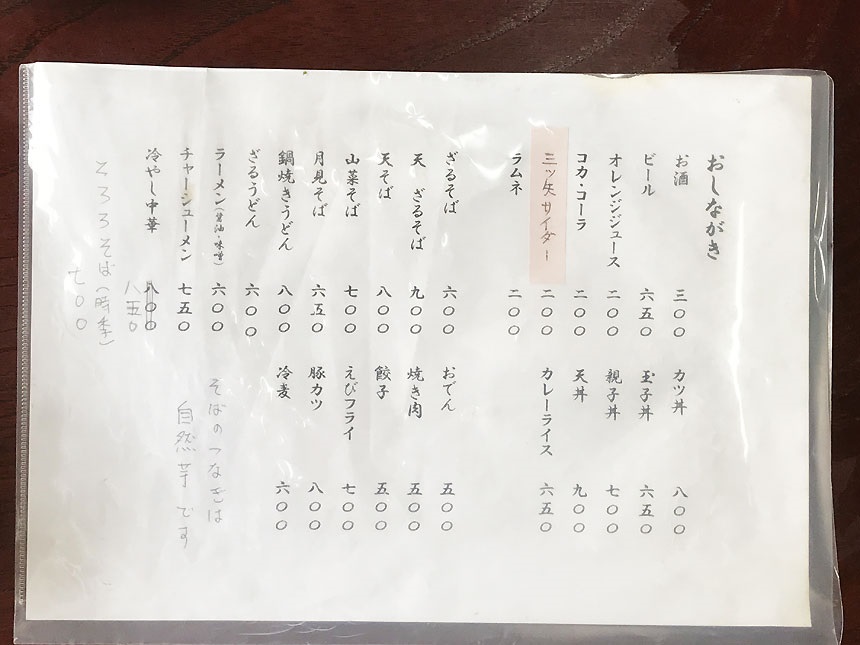 おしながき
お酒 三〇〇
ビール 六五〇
オレンジジュース 二〇〇
コカ・コーラ 二〇〇
三ッ矢サイダー 二〇〇
ラムネ 二〇〇
カツ丼 八〇〇
玉子丼 六五〇
親子丼 七〇〇
天丼 九〇〇
カレーライス 六五〇
ざるそば 六〇〇
天ざるそば 九〇〇
天そば 八〇〇
山菜そば 七〇〇
月見そば 六五〇
鍋焼きうどん 八〇〇
ざるうどん 六〇〇
ラーメン(醤油・味噌) 六〇〇
チャーシューメン 七五〇
冷やし中華 八〇〇
八五〇
とろろそば(時季)
七〇〇
おでん 五〇〇
焼き肉 五〇〇
餃子 五〇〇
えびフライ 七〇〇
豚カツ 八〇〇
冷麦 六〇〇
そばのつなぎは
自然芋です